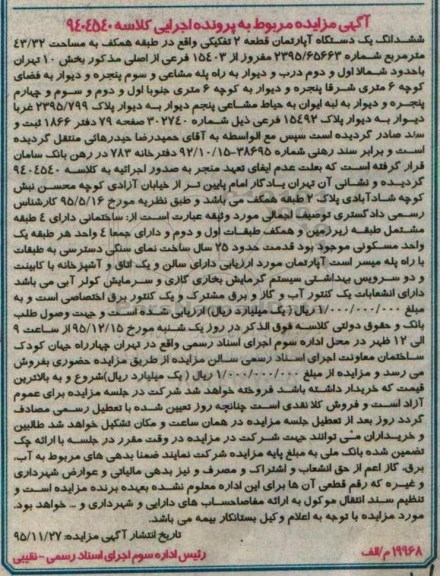 آگهی مزایده مربوط به پرونده اجرایی کلاسه ۹۴۰۴۵۴۰
ششدانگ یک دستگاه آپارتمان قطعه ۲ تفکیکی واقع در طبقه همکف به مساحت ۴۳/۳۲
مترمربع شماره ۲۳۹۵/۶۵۶۶۳ مفروز از ۱۵۴۰۳ فرعی از اصلی مذکور بخش ۱۰ تهران
باحدود شمالا اول و دوم درب و دیوار به راه پله مشاعی و سوم پنجره و دیوار به فضای
کوچه ۶ متری شرقا پنجره و دیوار به کوچه ۶ متری جنوبا اول و دوم و سوم و چهارم
پنجره و دیوار به لبه ایوان به حیاط مشاعی پنجم دیوار به دیوار پلاک ۲۳۹۵/۷۹۹ غربا
دیوار به دیوار پلاک ۱۵۴۹۲ فرعی ذیل شماره ۳۰۲۷۴۰ صفحه ۷۹ دفتر ۱۸۶۶ ثبت و
سند صادر گردیده است سپس مع الواسطه به آقای حمیدرضا حیدرهائی منتقل گردیده
است و برابر سند رهنی شماره ۳۸۶۹۵-۹۲/۱۰/۱۵ دفترخانه ۷۸۳ در رهن بانک سامان
قرار گرفته است که بعلت عدم ایفای تعهد منجر به صدور اجرائیه به کلاسه ۹۴۰۴۵۴۰
گردیده و نشانی آن تهران یادگار امام پایین تر از خیابان آزادی کوچه محسن نبش
کوچه شادآبادی پلاک ۲ طبقه همکف می باشد و طبق نظریه مورخ ۹۵/۵/۱۶ کارشناس
رسمی دادگستری توصیف اجمالی مورد وثیقه عبارت است از: ساختمانی دارای ۴ طبقه
مشتمل طبقه زیرزمین و همکف طبقات اول و دوم و دارای جمعا ۴ واحد هر طبقه یک
واحد مسکونی موجود بود قدمت حدود ۲۵ سال ساخت نمای سنگی دسترسی به طبقات
با راه پله میسر است آپارتمان مورد ارزیابی دارای سالن و یک اتاق و آشپزخانه با کابینت
و دو سرویس بهداشتی سیستم گرمایش بخاری گازی و سرمایش کولر آبی می باشد
دارای انشعابات یک کنتور آب و گاز و برق مشترک و یک کنتور برق اختصاصی است و به
مبلغ ۱/۰۰۰/۰۰۰/۰۰۰ ریال ( یک میلیارد ریال) ارزیابی شده است و جهت وصول طلب
بانک و حقوق دولتی کلاسه فوق الذکر در روز یک شنبه مورخ ۹۵/۱۲/۱۵ از ساعت ۹
الی ۱۲ ظهر در محل اداره سوم اجرای اسناد رسمی واقع در تهران چهارراه جهان کودک
ساختمان معاونت اجرای اسناد رسمی سالن مزایده از طریق مزایده حضوری بفروش
می رسد و مزایده از مبلغ ۱/۰۰۰/۰۰۰/۰۰۰ ریال ( یک میلیارد ریال)شروع و به بالاترین
قیمت که خریدار داشته باشد فروخته خواهد شد شرکت در جلسه مزایده برای عموم
آزاد است و فروش کلا نقدی است چنانچه روز تعیین شده با تعطیل رسمی مصادف
گردد روز بعد از تعطیل جلسه مزایده در همان ساعت و مکان تشکیل خواهد شد طالبین
و خریداران می توانند جهت شرکت در مزایده در وقت مقرر در جلسه با ارائه چک
تضمین شده بانک ملی به مبلغ پایه مزایده شرکت نمایند ضمنا بدهی های مربوط به آب،
برق، گاز اعم از حق انشعاب و اشتراک و مصرف و نیز بدهی مالیاتی و عوارض شهرداری
و غیره که رقم قطعی آن ها برای این اداره معلوم نشده بعهده برنده مزایده است و
تنظیم سند انتقال موکول به ارائه مفاصاحساب های دارایی و شهرداری و .. خواهد بود.
مورد مزایده با توجه به اعلام وکیل بستانکار بیمه می باشد.
تاریخ انتشار آگهی مزایده: ۹۵/۱۱/۲۷
۱۹۹۶۸ م/الف رئیس اداره سوم اجرای اسناد رسمی - نقیبی